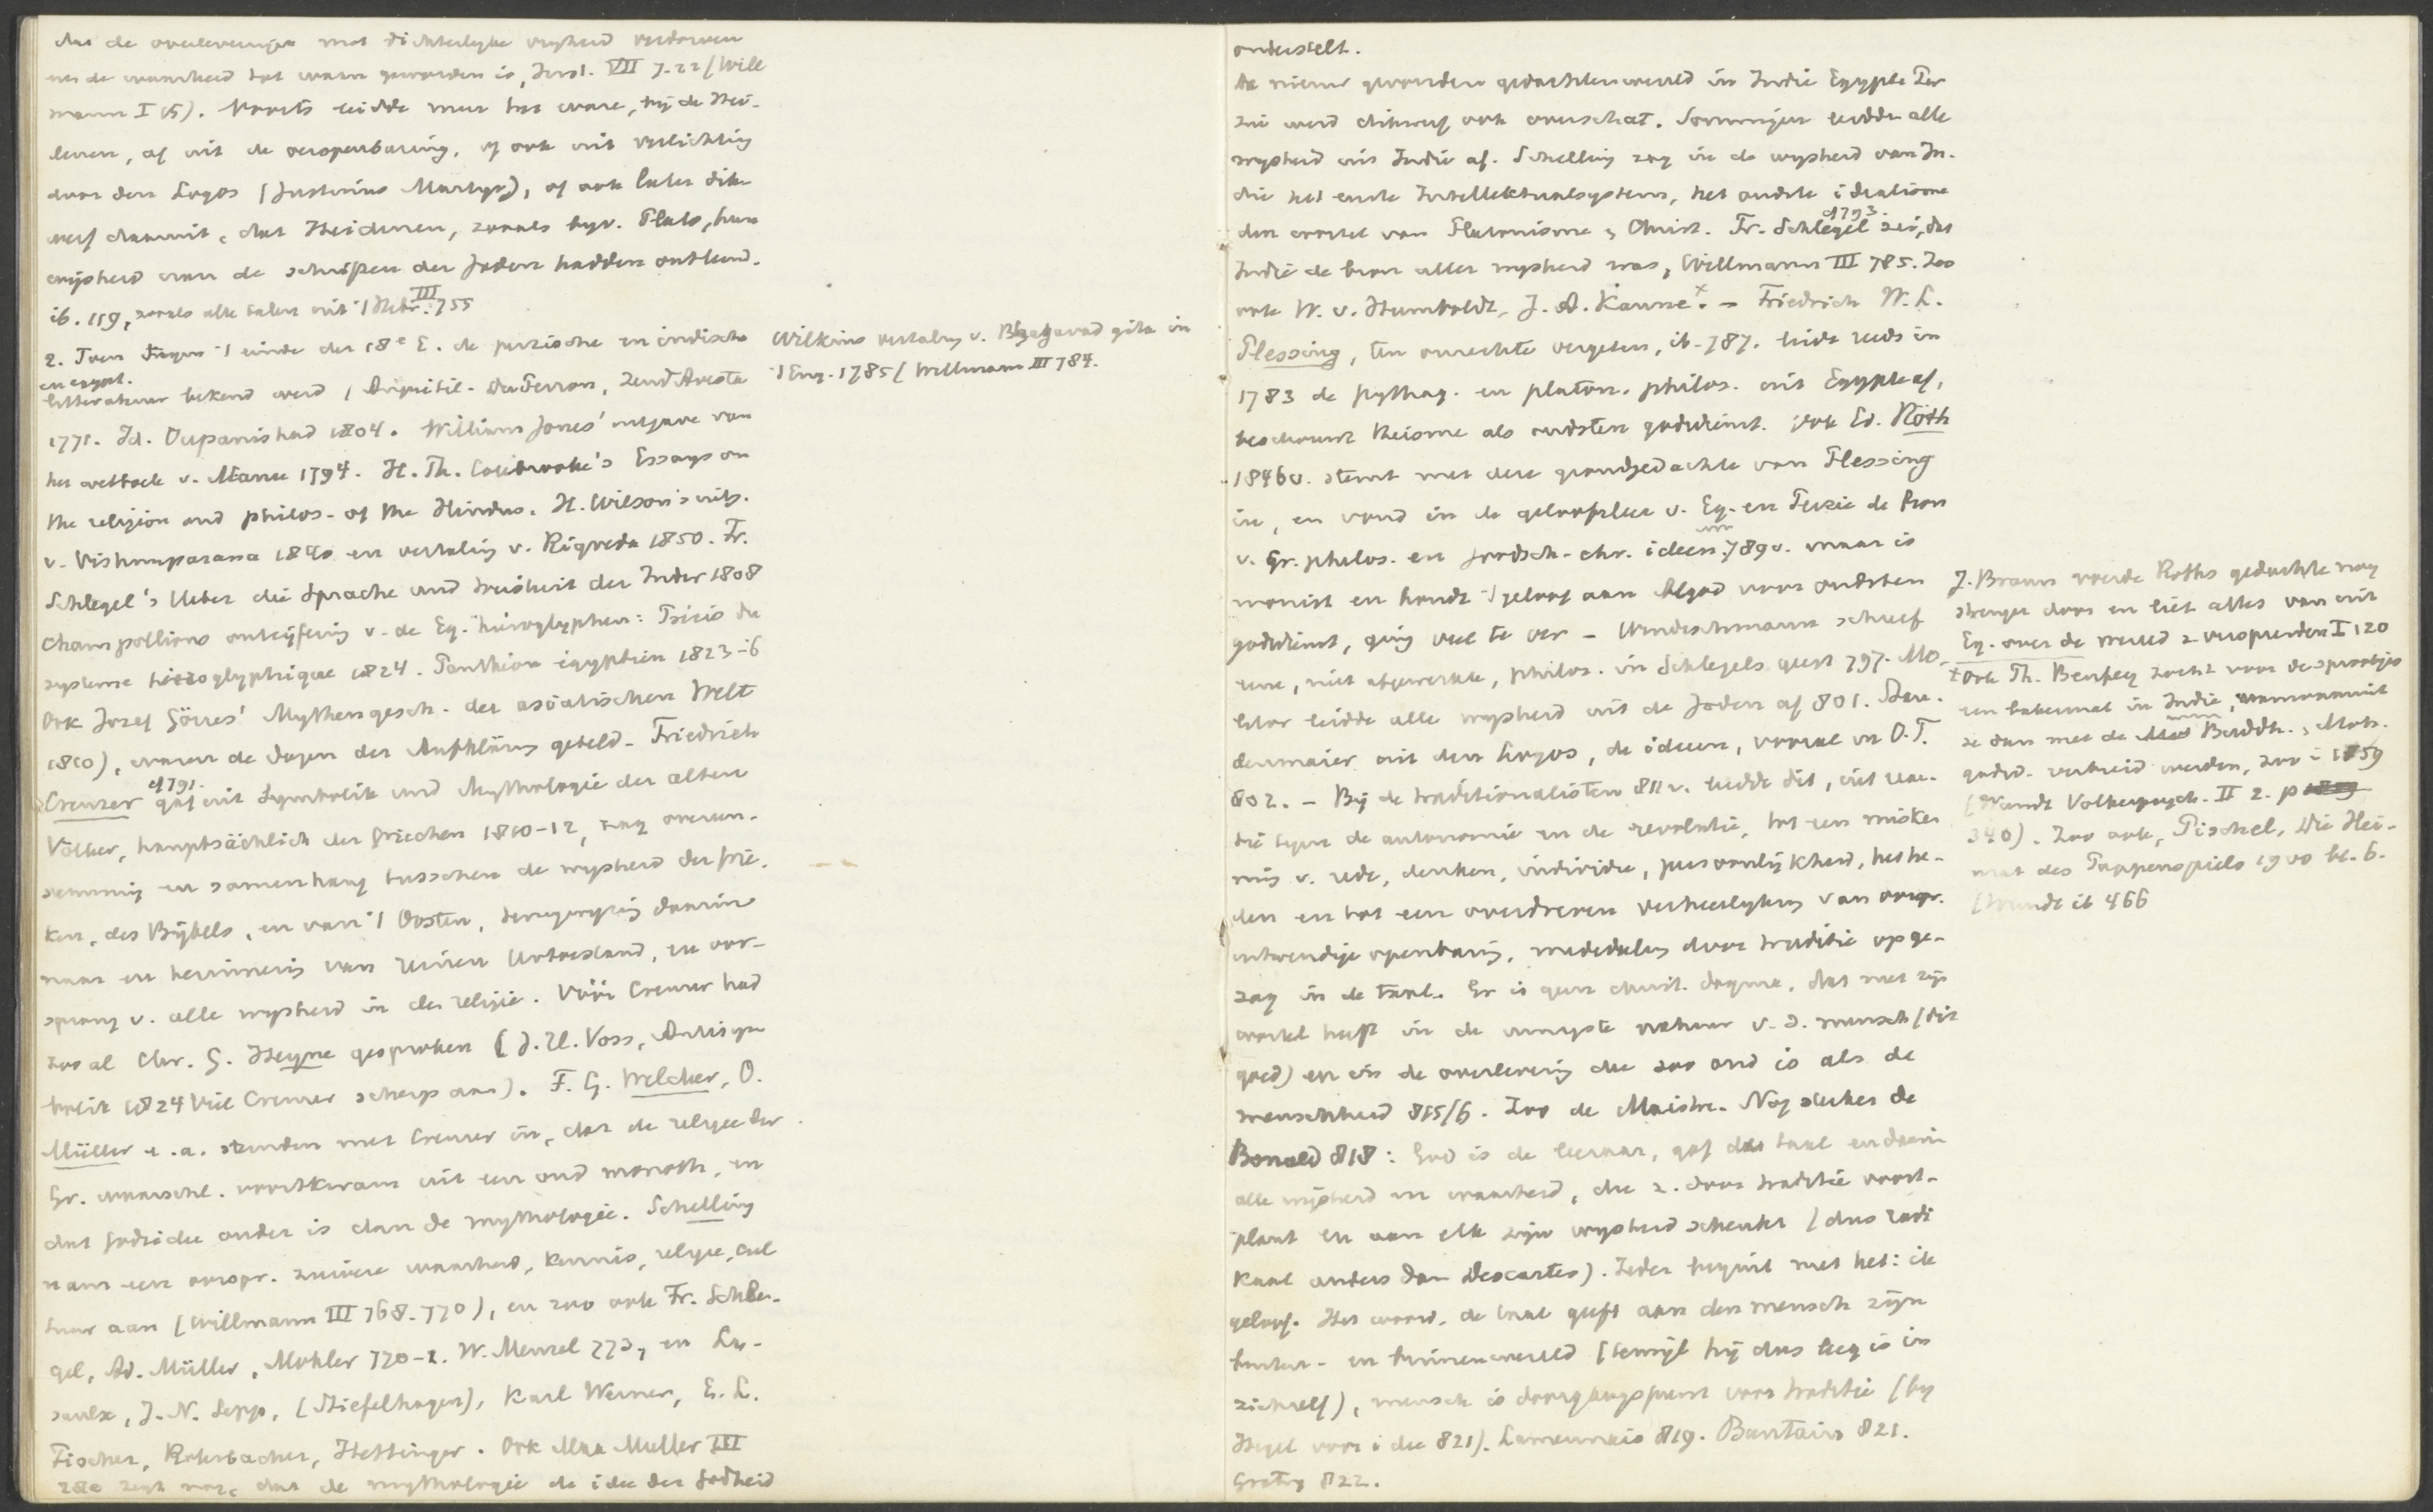 dat de overleveringen met dichterlyke vryheid verdorven
en de waarheid tot waan geworden is, Inst. VII 7.22 (Will
mann I 15). Voorts leidde men het ware, bij de Hei-
denen, af uit de oeropenbaring, of ook uit verlichting
door den Logos (Justinus Martyr), of ook later dik-
werf daaruit, dat Heidenen, zooals byv. Plato, hun
wijsheid aan de schriften der Joden hadden ontleend.
ib. 159, zooals alle talen uit 't Hebr. III 755
2. Toen tegen 't einde der 18e E. de perzische en indische
en egypt.
litteratuur bekend werd (Anquetil-DuPerron, Zend Avesta
1771. Id. Oupanishad 1804. William Jones' uitgave van
het wetboek v. Manu 1794. H. Th. Colebrooke's Essays on
the religion and philos. of the Hindus. H. Wilson's uitg.
v. Vishnupurana 1840 en vertaling v. Rigveda 1850. Fr.
Schlegel's Ueber die Sprache und Weisheit der Inder 1808
Champollions ontcijfering v. de Eg. hieroglyphen: Précis du
système hiéroglyphique 1824. Panthéon égyptien 1823-6
Ook Jozef Görres' Mythengesch. der asiatischen Welt
1810), waren de dagen der Aufklärung geteld. Friedrich
Creuzer gaf uit Symbolik und Mythologie der alten
Völker, hauptsächlich der Griechen 1810-12, zag overeen-
stemming en samenhang tusschen de wysheid der Grie-
ken, des Bijbels, en van 't Oosten, terugwyzing daarin
naar en herinnering van reinen Urzustand, en oor-
sprong v. alle wysheid in de religie. Vóór Creuzer had
zoo al Chr. G. Heyne gesproken (J. H. Voss, Antisym
bolik 1824 viel Creuzer scherp aan). F. G. Welcker, O.
Müller e.a. stemden met Creuzer in, dat de religie der
Gr. waarschl. voortkwam uit een oud monoth. en
dat Godsidee ouder is dan de mythologie. Schelling
nam een oorspr. zuivere waarheid, kennis, religie, cul
tuur aan (Willmann III 768-770), en zoo ook Fr. Schle-
gel, Ad. Müller, Möhler 770-2. W. Menzel 773, en La-
saulx, J. N. Sepp, (Stiefelhagen), Karl Werner, E. L.
Fischer, Rohrbacher, Hettinger. Ook Max Muller III
zegt nog, dat de mythologie de idee der Godheid
Wilkins vertaling v. Bhagavad gita in
't Eng. 1785 (Willmann III 784.
onderstelt.
De nieuw gevonden gedachtenwereld in Indië Egypte Per
zië werd dikwerf ook overschat. Sommigen leidden alle
wysheid uit Indië af. Schelling zag in de wysheid van In-
dië het eerste Intellektualsystem, het oudste idealisme
den wortel van Platonisme & Christ. Fr. Schlegel zei, dat
Indië de bron aller wysheid was, Willmann III 785. Zoo
ook W. v. Humboldt, J. A. Kanne. x – Friedrich W. L.
Plessing, ten onrechte vergeten, ib. 787. leidt reeds in
1783 de Pythag. en platon. philos. uit Egypte af,
beschouwt theisme als oudsten godsdienst. Ook Ed. Röth
1846v. stemt met deze grondgedachte van Plessing
in, en vond in de geloofsleer v. Eg. en Perzie de bron
v. Gr. philos. en joodsch-chr. ideen 789v. maar is
monist en houdt 't geloof aan Algod voor oudsten
godsdienst, ging veel te ver – Windischmann schreef
eene, niet afgewerkte, philos. in Schlegels geest 797. Mo-
litor leidde alle wysheid uit de Joden af 801. Stau-
denmaier uit den Logos, de ideeen, vooral in O.T.
802. – Bij de traditionalisten 811v. leidde dit, uit reac-
tie tegen de autonomie en de revolutie, tot een misken
nis v. rede, denken, individu, persoonlijkheid, het he-
den en tot een overdreven verheerlyking van oorspr.
uitwendige openbaring, mededeeling door traditie opge-
zag in de taal. Er is geen christ. dogma, dat niet zijn
wortel heeft in de innigste natuur v. d. mensch (dit
goed) en in de overlevering die zoo oud is als de
menschheid 815/6. Zoo de Maistre. Nog sterker de
Bonald 818: God is de leeraar, gaf de taal en daarin
alle wijsheid en waarheid, die z. door traditie voort-
plant en aan elk zijn wysheid schenkt (dus radi
kaal anders dan Descartes). Ieder begint met het: ik
geloof. Het woord, de taal geeft aan den mensch zijn
buiten- en binnenwereld (terwijl hij dus leeg is in
zichzelf), mensch is doorgangspunt voor traditie (by
Hegel voor idee 821). Lamennais 819. Bautain 821.
Gratry 822.
J. Braun voerde Roths gedachte nog
strenger door en liet alles van uit
Eg. over de wereld z. verspreiden I 120
x Ook Th. Benfey zocht voor de sprookjes
een bakermat in Indië, vanwaaruit
ze dan met de Buddh. Moh.
godsd. verbreid werden, zoo in 1859
(Wundt Volkerpsych. II 2. p
340). Zoo ook, Pischel, Die Hei-
mat des Puppenspiels 1900 bl. 6.
(Wundt ib 466